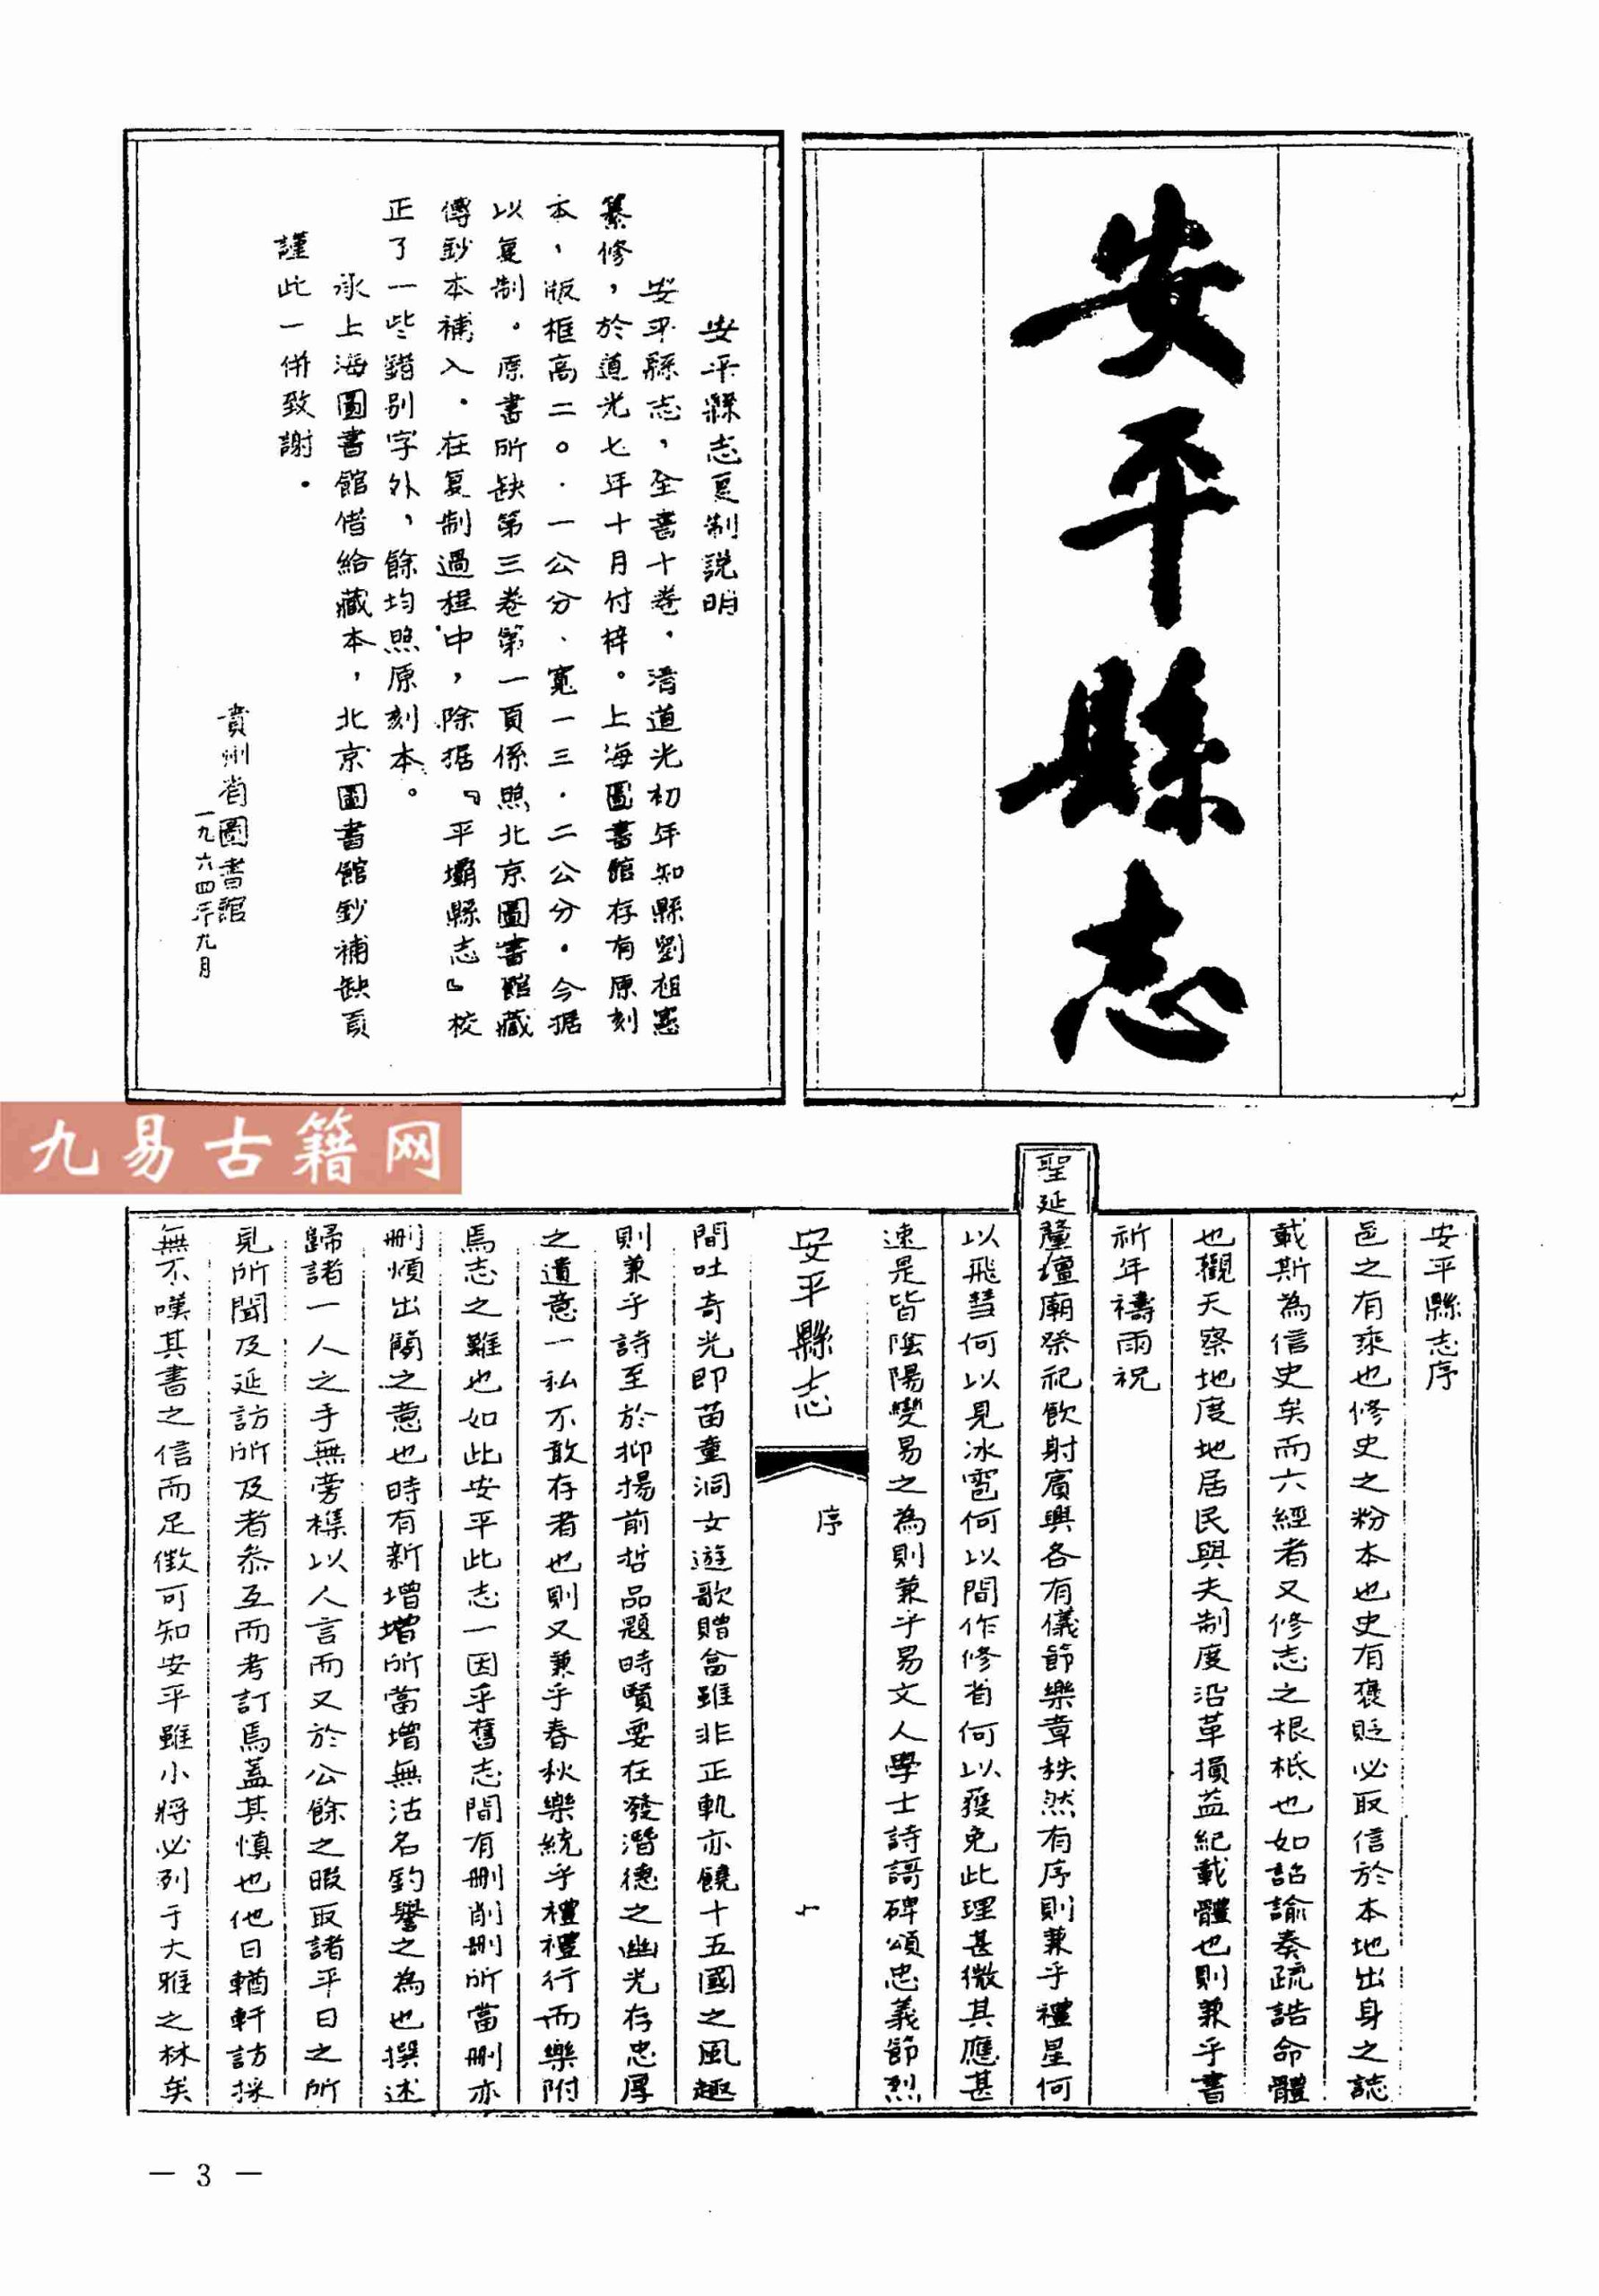 安平縣志
安平縣志复制説明
安平縣志，全書十卷．清道光初年知縣劉祖憲
纂修，於道光七年十月付梓。上海圖書館存有原刻
本，版框高二〇．一公分、寬一三．二公分．今据
以复制。原書所缺第三卷第一頁係照北京圖書館藏
傳鈔本補入．在复制過程中，除据『平壩縣志』校
正了一些錯別字外，餘均照原刻本。
承上海圖書館借給藏本，北京圖書館鈔補缺頁
謹此一併致謝．
貴州省圖書館
一九六四年九月
九易古籍网
安平縣志序
邑之有乘也修史之粉本也史有褒貶必取信於本地出身之誌
載斯為信史矣而六經者又修志之根柢也如詔諭奏疏誥命體
也觀天察地度地居民與夫制度沿革損益紀載體也則兼乎書
祈年禱雨祝
聖延釐壇廟祭祀飲射賓興各有儀節樂章秩然有序則兼乎禮星何
以飛彗何以見冰雹何以間作修省何以獲免此理甚微其應甚
速是皆陰陽變易之為則兼乎易文人學士詩謌碑頌忠義節烈
安平縣志
序
間吐奇光即苗童洞女遊歌贈畣雖非正軌亦饒十五國之風趣
則兼乎詩至於抑揚前哲品題時賢要在發潛德之幽光存忠厚
之遺意一私不敢存者也則又兼乎春秋樂統乎禮禮行而樂附
焉志之難也如此安平此志一因乎舊志間有刪削刪所當刪亦
刪煩出簡之意也時有新增增所當增無沽名釣譽之為也撰述
歸諸一人之手無旁襍以人言而又於公餘之暇取諸平日之所
見所聞及延訪所及者叅互而考訂焉蓋其慎也他日輶軒訪採
無不嘆其書之信而足徵可知安平雖小將必列于大雅之林矣
— 3 —